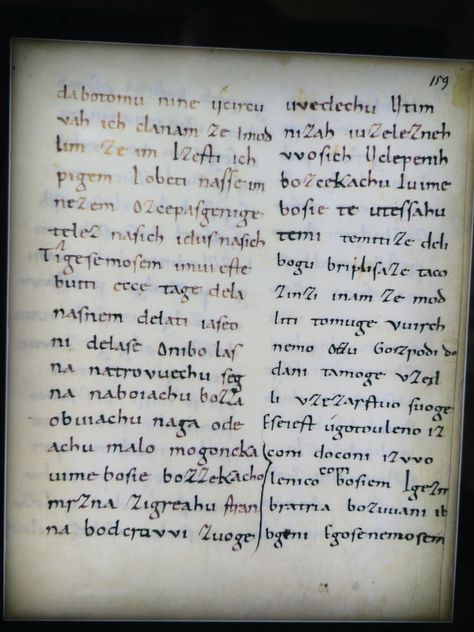 159
dabotomu nine ucircu
vah ich clanam Ze Imod
lim Ze im IZesti ich
pigem I obeti nasse im
neZem OZcepasgenige
teleZ nasich idus nasich
Tige se mosem imui este
buiti ecce tage dela
nasnem delati iaseo
ni delase Onibo las
na natrovuechu seg
na naboiachu boZZa
obuiachu naga ode
achu malo mogoncka
uime bosie boZZekacho
mrZna Zigreahu stran
na bodcrovvi Zuoge
uvedechu Utim
niZah iuZeleZneh
vvosich Uclepenih
boZceKachu Iuime
bosie te utessahu
temi temitiZe deli
bogu briplisaZe taco
ZinZi inam Ze mod
liti tomuge vuirch
nemo Otu GoZpodi do
dani tamoge uZe
li uZeZarstuo suoge
Eseiest ugotouleno iZ
coni doconi iZvvo
lenicom bosiem IgeZm
bratria boZuuani ib
bgeni Egosenemosem